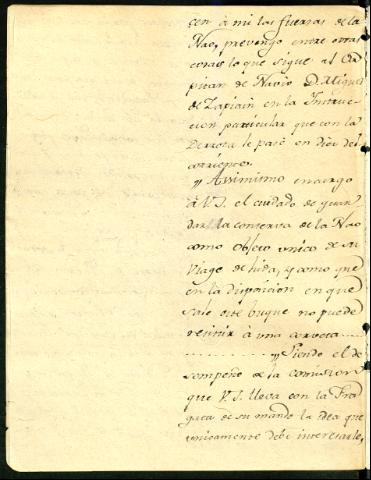 cen á mi las fuerzas de la
Nao, prevengo entre otras
cosas lo que sigue al Ca
pitan de Navio D. Migue
de Zapiain en la Instruc
cion particular que con la
Derrota le pasé en diez del
corriente.
,,, Assimismo encargo
á V.S. el cuidado de guar
dar la conserva de la Nao
como objeto unico de su
Viage de hida, y como que
en la disposicion en que
sale este buque no puede
resistir á una corveta......
............ ,,, Siendo el de
sempeño de la comision
que V.S. lleva con la Fra
gata de su mando la idea que
unicamente debe interesarle,